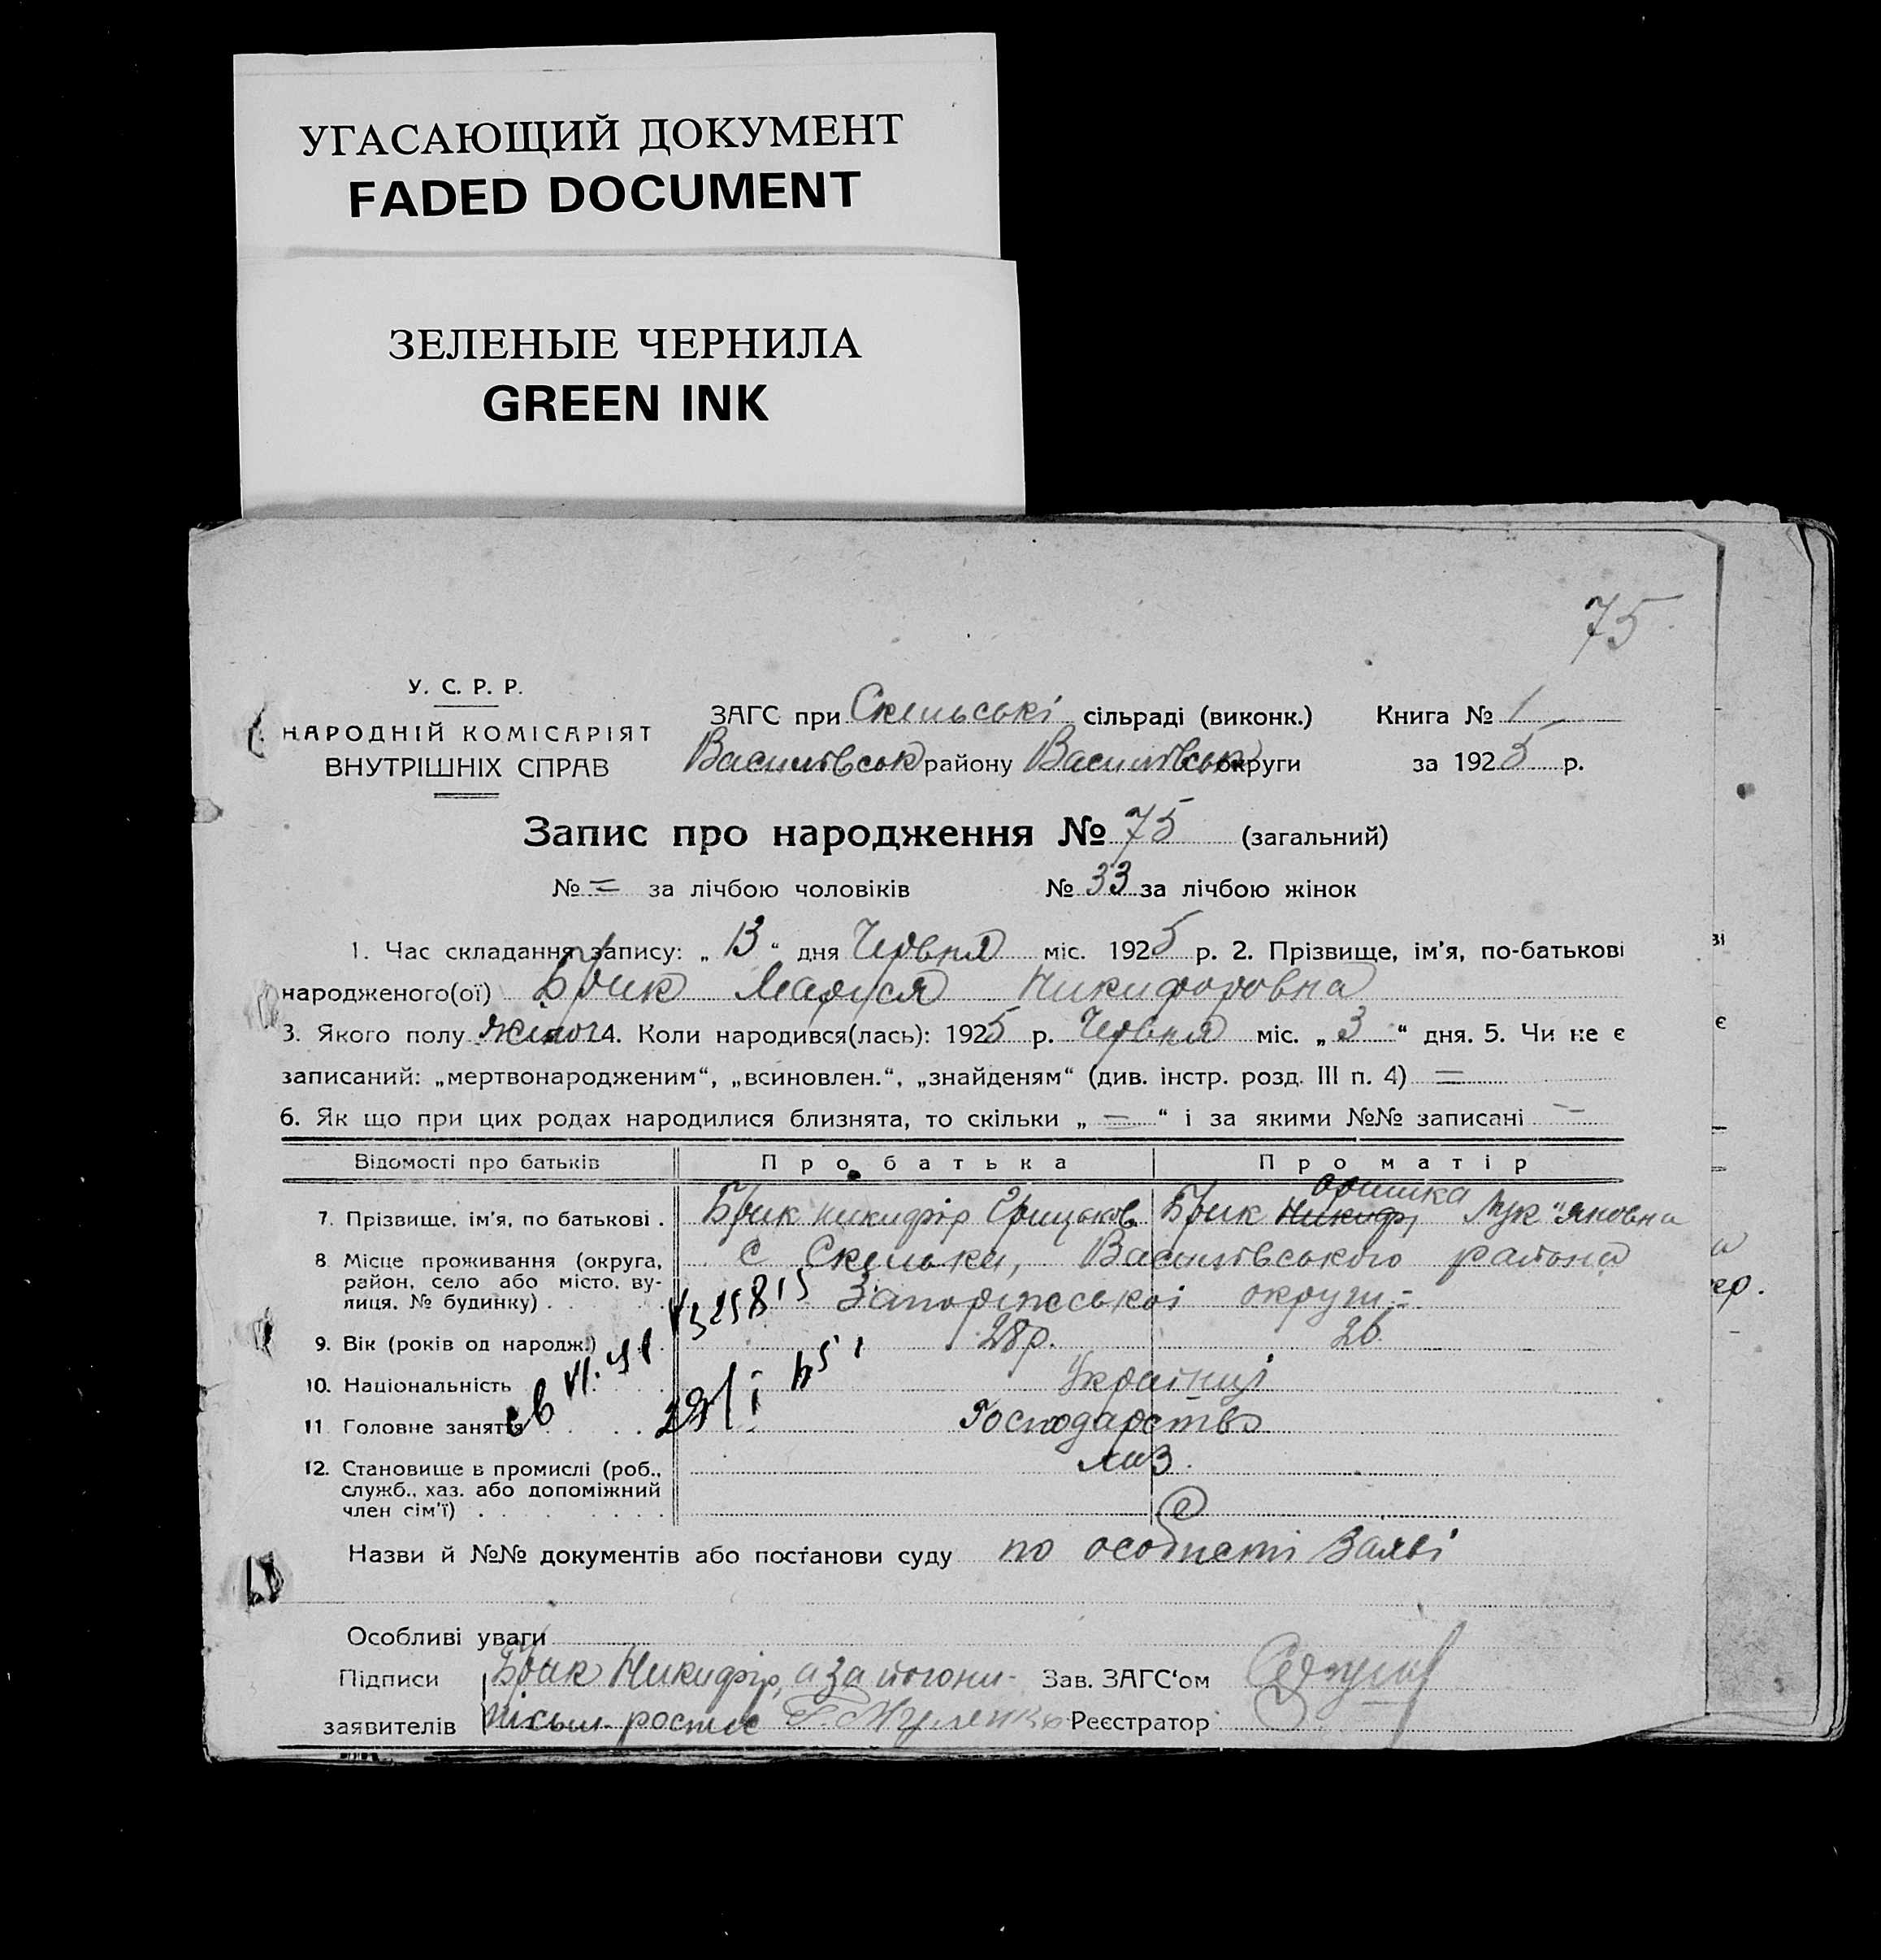 УГАСАЮЩИЙ ДОКУМЕНТ
FADED DOCUMENT
ЗЕЛЕНЫЕ ЧЕРНИЛА
GREEN INK
75
У. С. Р. Р.
НАРОДНІЙ КОМІСАРІЯТ
ВНУТРІШНІХ СПРАВ
ЗАГС при Скельські сільраді (виконк.) Книга № 1
Василівськ району Василівськ округи за 1925 р.
Запис про народження № 75 (загальний)
№ = за лічбою чоловіків № 33 за лічбою жінок
1. Час складання запису: „ 13 “ дня Червня міс. 1925 р. 2. Прізвище, ім'я, по-батькові
народженого(ої) Брик Маруся Никифоровна
3. Якого полу жіноч 4. Коли народився(лась): 1925 р. Червня міс. „ 3 “ дня. 5. Чи не є
записаний: „мертвонародженим“, „всиновлен.“, „знайденям“ (див. інстр. розд. III п. 4) =
6. Як що при цих родах народилися близнята, то скільки „ = “ і за якими №№ записані =
Відомості про батьків Про батька Про матір
7. Прізвище, ім'я, по батькові . Брик Никифір Грицьков Брик Никиф Оришка Лук"яновна
8 Місце проживання (округа, район, село або місто, вулиця, № будинку) . С Скельки, Василівського района
Запоріжської округи =
9. Вік (років од народж.) 28 р. 26
10. Національність Українці
11 Головне заняття Господарство
12. Становище в промислі (роб., служб., хаз. або допоміжний член сім'ї)
Назви й №№ документів або постанови суду по особисті Заяві
Особливі уваги
Підписи Брик Никифір, а за його не- Зав. ЗАГС'ом
заявителів письм. роспис Реєстратор